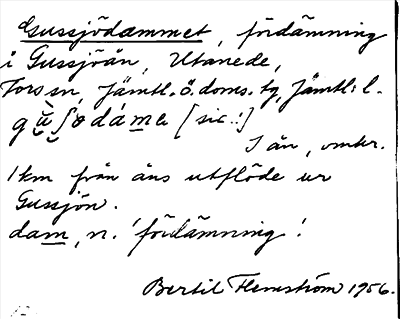 Gussjödammet, fördämning
i Gussjöån, Utanede,
Fors sn, Jämtl. ö. doms. tg, Jämtl:l.
[sic!]
I ån, omkr.
1 km från åns utflöde ur
Gussjön.
dam, n. 'fördämning'.
Bertil Flemström 1956.